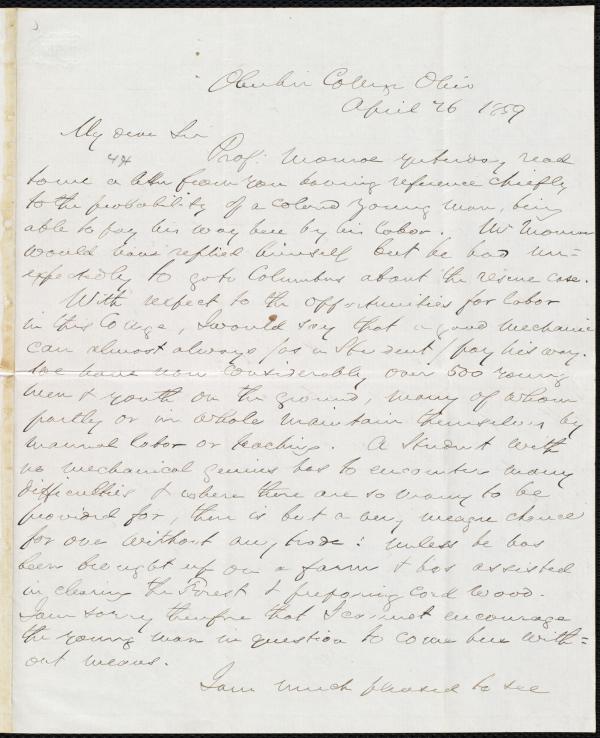 Oberlin College Ohio
April 26 1859
My dear Sir
Prof: Monroe yesterday read
to me a letter from you having reference chiefly
to the probability of a colored young man, being
able to pay his way here by his labor. Mr Monroe
would have replied himself but he had un=
expectedly to go to Columbus about the rescue case.
With respect to the opportunities for labor
in this College, I would say that a good mechanic
can almost always (as a Student) pay his way.
We have now considerably over 500 young
men & youth on the ground, many of whom
partly or in whole maintain themselves by
manual labor or teaching. A Student with
no mechanical genius has to encounter many
difficulties & where there are so many to be
provided for, there is but a very meagre chance
for one without any trade: unless he has
been brought up on a farm & has assisted
in clearing the Forest & preparing Cord Wood.
I am sorry therefore that I cannot encourage
the young man in question to come here with=
out means.
I am much pleased to see